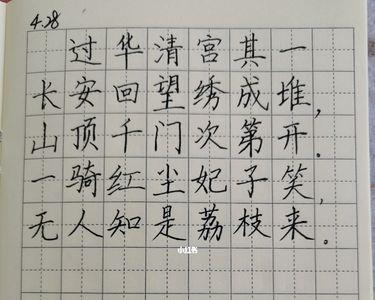 4.28
过华清宫其一
长安回望绣成堆，
山顶千门次第开．
一骑红尘妃子笑，
无人知是荔枝来。